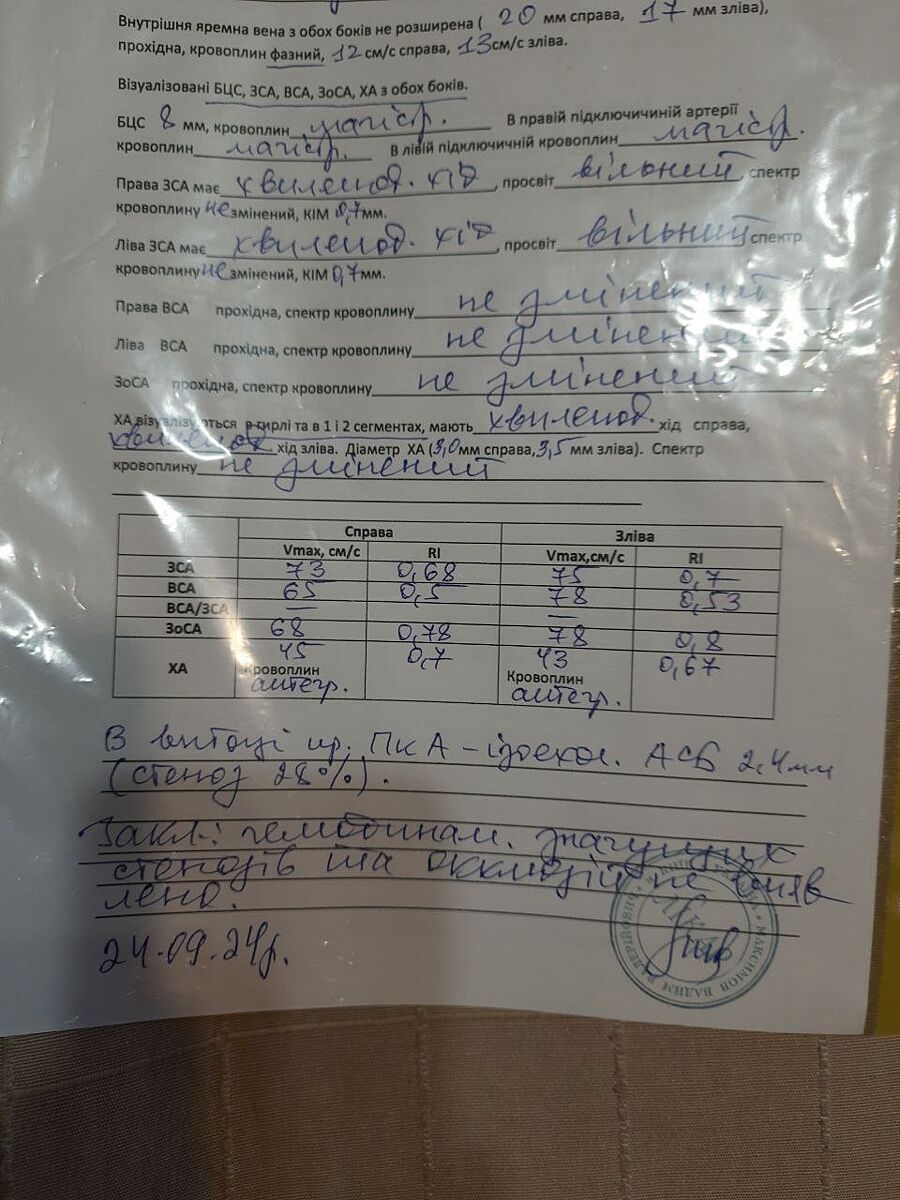 Внутрішня яремна вена з обох боків не розширена ( 20 мм справа, 17 мм зліва),
прохідна, кровоплин фазний, 12 см/с справа, 13 см/с зліва.
Візуалізовані БЦС, ЗСА, ВСА, ЗоСА, ХА з обох боків.
БЦС 8 мм, кровоплин магістр. В правій підключичиній артерії
кровоплин магістр. В лівій підключичній кровоплин магістр.
Права ЗСА має хвилепод. хід, просвіт вільний, спектр
кровоплину не змінений, КІМ 0,7 мм.
Ліва ЗСА має хвилепод. хід, просвіт вільний спектр
кровоплину не змінений, КІМ 0,7 мм.
Права ВСА прохідна, спектр кровоплину не змінений
Ліва ВСА прохідна, спектр кровоплину не змінений
ЗоСА прохідна, спектр кровоплину не змінений
ХА візуалізуються в гирлі та в 1 і 2 сегментах, мають хвилепод. хід справа,
хвилепод хід зліва. Діаметр ХА (3,0 мм справа, 3,5 мм зліва). Спектр
кровоплину не змінений
Справа Зліва
Vmax, см/с RI Vmax,см/с RI
ЗСА 73 0,68 75 0,7
ВСА 65 0,5 78 0,53
ВСА/ЗСА — —
ЗоСА 68 0,78 78 0,8
ХА 45 0,7 43 0,67
Кровоплин антегр. Кровоплин антегр.
В витоці пр. ПкА – ізоехог. АСБ 2,4 мм
(стеноз 28%).
Закл.: гемодинам. значущих
стенозів та оклюзій не вияв
лено.
24.09.24р.
МАКСИМОВ ВАДИМ ВАЛЕРІЙОВИЧ